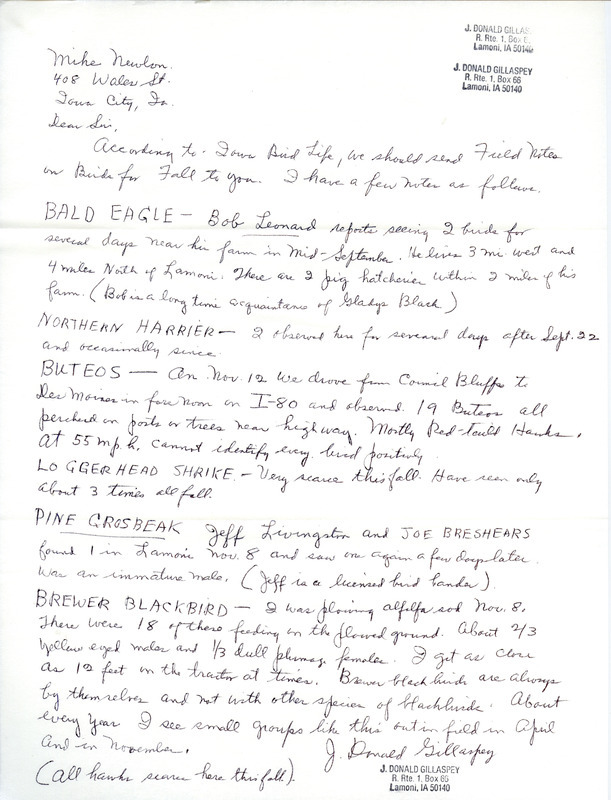 J. DONALD GILLAS
R. Rte. 1, Box 6
Lamoni, IA 50140
J. DONALD GILLASPEY
R. Rte. 1, Box 66
Lamoni, IA 50140
Mike Newlon.
408 Wales St.
Iowa City, Ia.
Dear Sir,
According to Iowa Bird Life, we should send Field Notes
on Birds for Fall to you. I have a few notes as follows.
BALD EAGLE - Bob Leonard reports seeing 2 birds for
several days near his farm in Mid-September. He lives 3 mi. west and
4 miles North of Lamoni. There are 2 pig hatcheries within 2 miles of his
farm. (Bob is a long time acquaintance of Gladys Black)
NORTHERN HARRIER - 2 observed here for several days after Sept. 22
and occasionally since.
BUTEOS - On Nov. 12 we drove from Council Bluffs to
Des Moines in fore noon on I-80 and observed 19 Buteos all
perched on posts or trees near highway. Mostly Red-tail Hawks.
At 55 m.p.h. cannot identify every bird positively.
LOGGERHEAD SHRIKE. - Very scarce this fall. Have seen only
about 3 times all fall.
PINE GROSBEAK Jeff Livingston and JOE BRESHEARS
found 1 in Lamoni Nov. 8 and saw one again a few days later.
Was an immature male. (Jeff is a licensed bird bander)
BREWER BLACKBIRD - I was plowing alfalfa sod Nov. 8.
There were 18 of these feeding on the plowed ground. About 2/3
yellow eyed males and 1/3 dull plumage females. I get as close
as 12 feet on the tractor at times. Brewer blackbirds are always
by themselves and not with other species of blackbirds. About
every year I see small groups like this out in field in April
and in November.
J. Donald Gillaspey
(all hawks scarce here this fall).
J. DONALD GILLASPEY
R. Rte. 1, Box 66
Lamoni, IA 50140